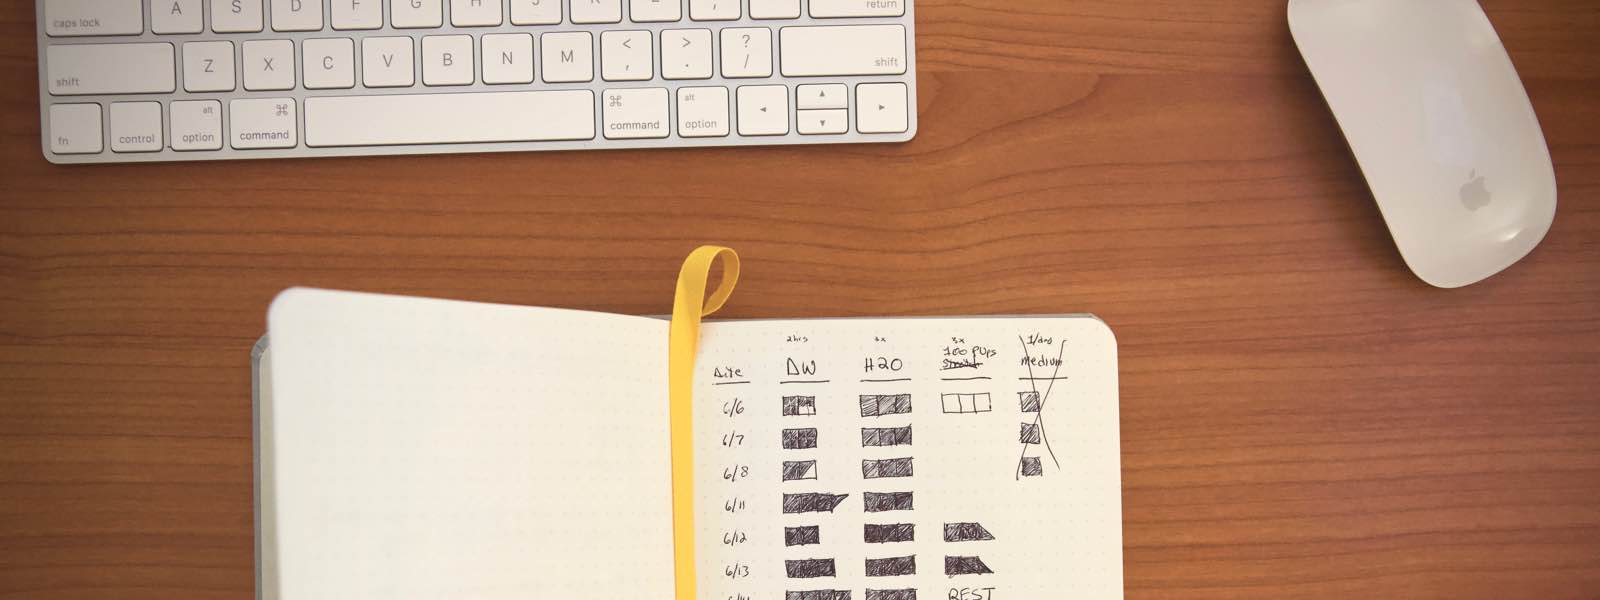 caps lock A S D F G H J K L ; return
shift Z X C V B N M < , > . ? / shift
fn control alt option ⌘ command ⌘ command alt option ◄ ▲ ▼ ►
2hrs 3x 1/day
Date DW H2O 100 PUps Medium
6/6
6/7
6/8
6/11
6/12
6/13
REST